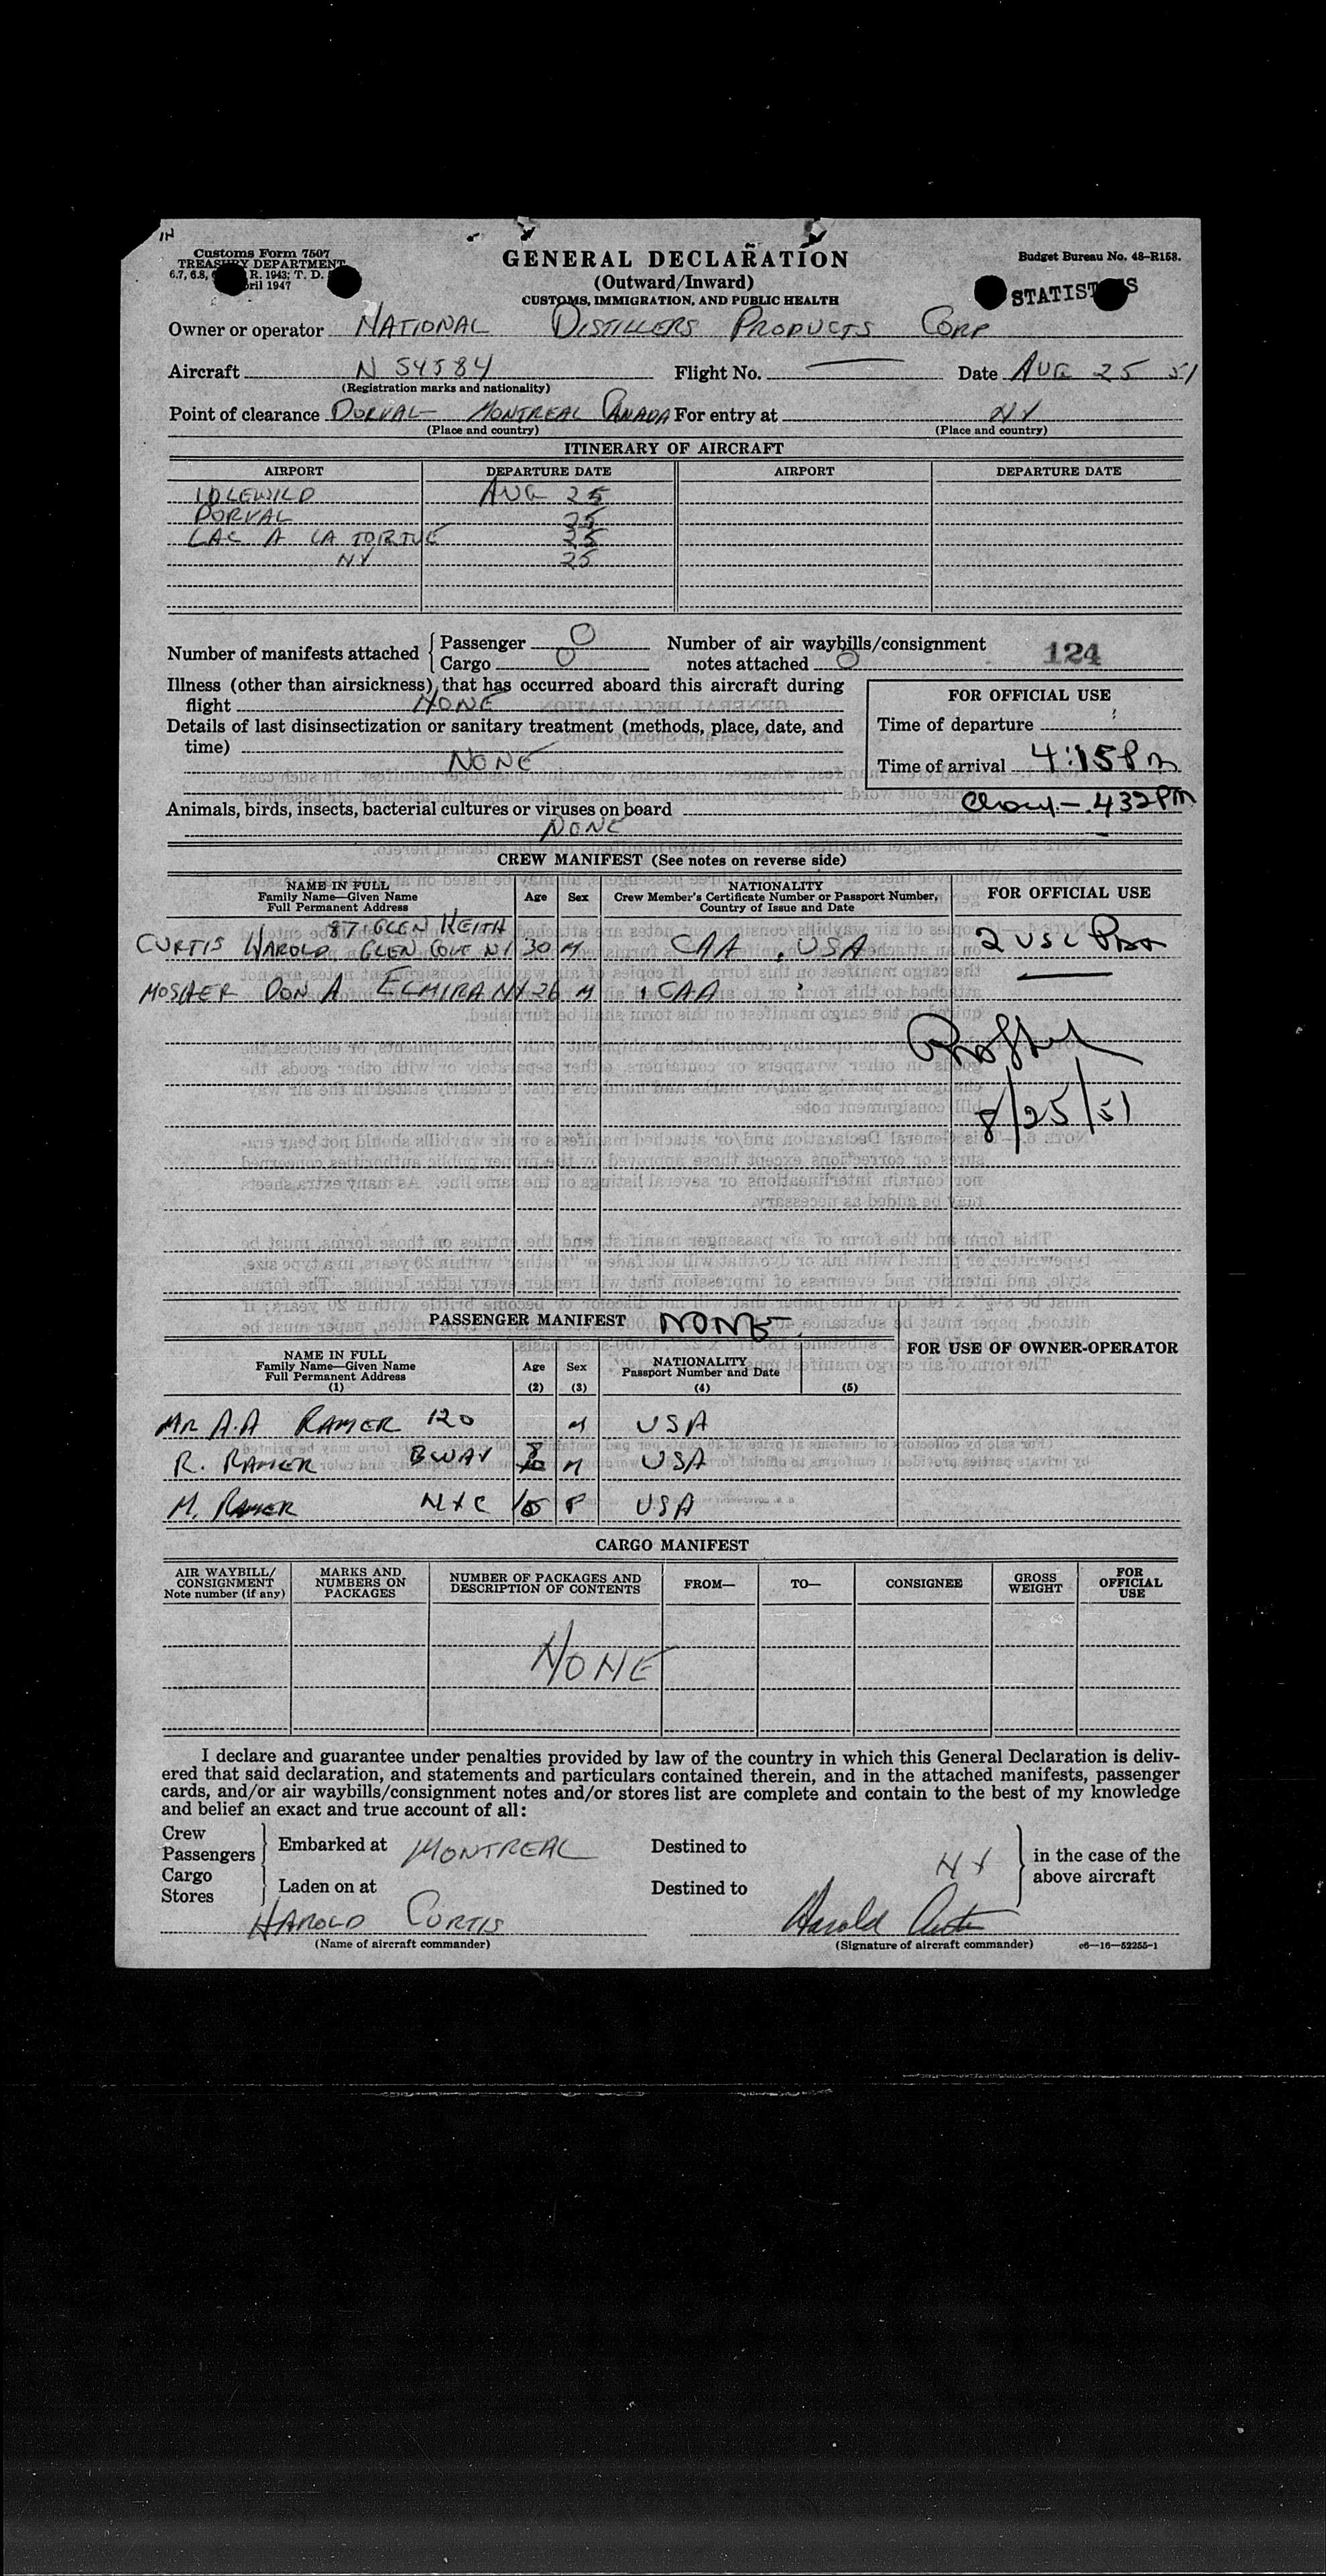 IN
Customs Form 7507
TREASURY DEPARTMENT
6.7, 6.8, R. 1943; T. D.
April 1947
GENERAL DECLARATION
(Outward/Inward)
CUSTOMS, IMMIGRATION, AND PUBLIC HEALTH
Budget Bureau No. 48-R158.
STATISTICS
Owner or operator NATIONAL DISTILLERS PRODUCTS CORP
Aircraft N 54584 Flight No. — Date AUG 25 51
(Registration marks and nationality)
Point of clearance DORVAL - MONTREAL CANADA For entry at NY
(Place and country) (Place and country)
ITINERARY OF AIRCRAFT
AIRPORT DEPARTURE DATE AIRPORT DEPARTURE DATE
IDLEWILD AUG 25
DORVAL 25
LAC A LA TORTUE 25
NY 25
Number of manifests attached Passenger 0 Cargo 0 Number of air waybills/consignment notes attached 0 124
Illness (other than airsickness), that has occurred aboard this aircraft during
flight NONE
Details of last disinsectization or sanitary treatment (methods, place, date, and
time)
NONE
FOR OFFICIAL USE
Time of departure
Time of arrival 4:15 Pm
432 PM
Animals, birds, insects, bacterial cultures or viruses on board
NONE
CREW MANIFEST (See notes on reverse side)
NAME IN FULL
Family Name—Given Name
Full Permanent Address
Age Sex
NATIONALITY
Crew Member's Certificate Number or Passport Number,
Country of Issue and Date
FOR OFFICIAL USE
87 GLEN KEITH
CURTIS HAROLD GLEN COVE NY 30 M CAA . USA 2 USC
MOSHER DON A ELMIRA NY 26 M CAA
8/25/51
PASSENGER MANIFEST NONE
FOR USE OF OWNER-OPERATOR
NAME IN FULL
Family Name—Given Name
Full Permanent Address
(1)
Age
(2)
Sex
(3)
NATIONALITY
Passport Number and Date
(4) (5)
MR A.A RAMER 120 M USA
R. RAMER BWAY M USA
M. RAMER NYC 15 F USA
CARGO MANIFEST
AIR WAYBILL/
CONSIGNMENT
Note number (if any)
MARKS AND
NUMBERS ON
PACKAGES
NUMBER OF PACKAGES AND
DESCRIPTION OF CONTENTS
FROM— TO— CONSIGNEE
GROSS
WEIGHT
FOR
OFFICIAL
USE
NONE
I declare and guarantee under penalties provided by law of the country in which this General Declaration is deliv-
ered that said declaration, and statements and particulars contained therein, and in the attached manifests, passenger
cards, and/or air waybills/consignment notes and/or stores list are complete and contain to the best of my knowledge
and belief an exact and true account of all:
Crew
Passengers
Cargo
Stores
Embarked at MONTREAL Destined to
Laden on at Destined to NY
in the case of the
above aircraft
HAROLD CURTIS Harold Curtis
(Name of aircraft commander) (Signature of aircraft commander) c6—16—52255-1